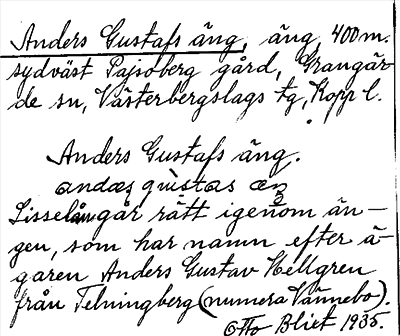 Anders Gustafs äng, äng, 400 m.
sydväst Pajsoberg gård, Grangär-
de sn, Västerbergslags tg, Kopp l.
Anders Gustafs äng.
andaş gùstas æŋ
Lisselån går rätt igenom än-
gen, som har namn efter ä-
garen Anders Gustav Hellgren
från Telningberg (numera Vännebo).
Otto Blixt 1935.